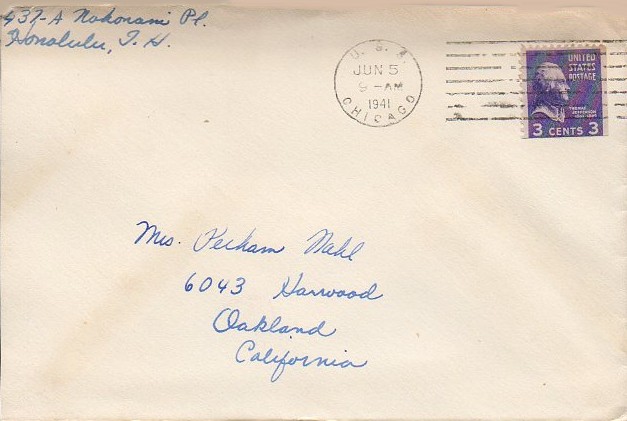 437-A Nohonani Pl.
Honolulu, T. H.
U. S. A.
JUN 5
9 - AM
1941
CHICAGO
UNITED
STATES
POSTAGE
THOMAS
JEFFERSON
3 CENTS 3
Mrs. Peckam Wahl
6043 Harwood
Oakland
California